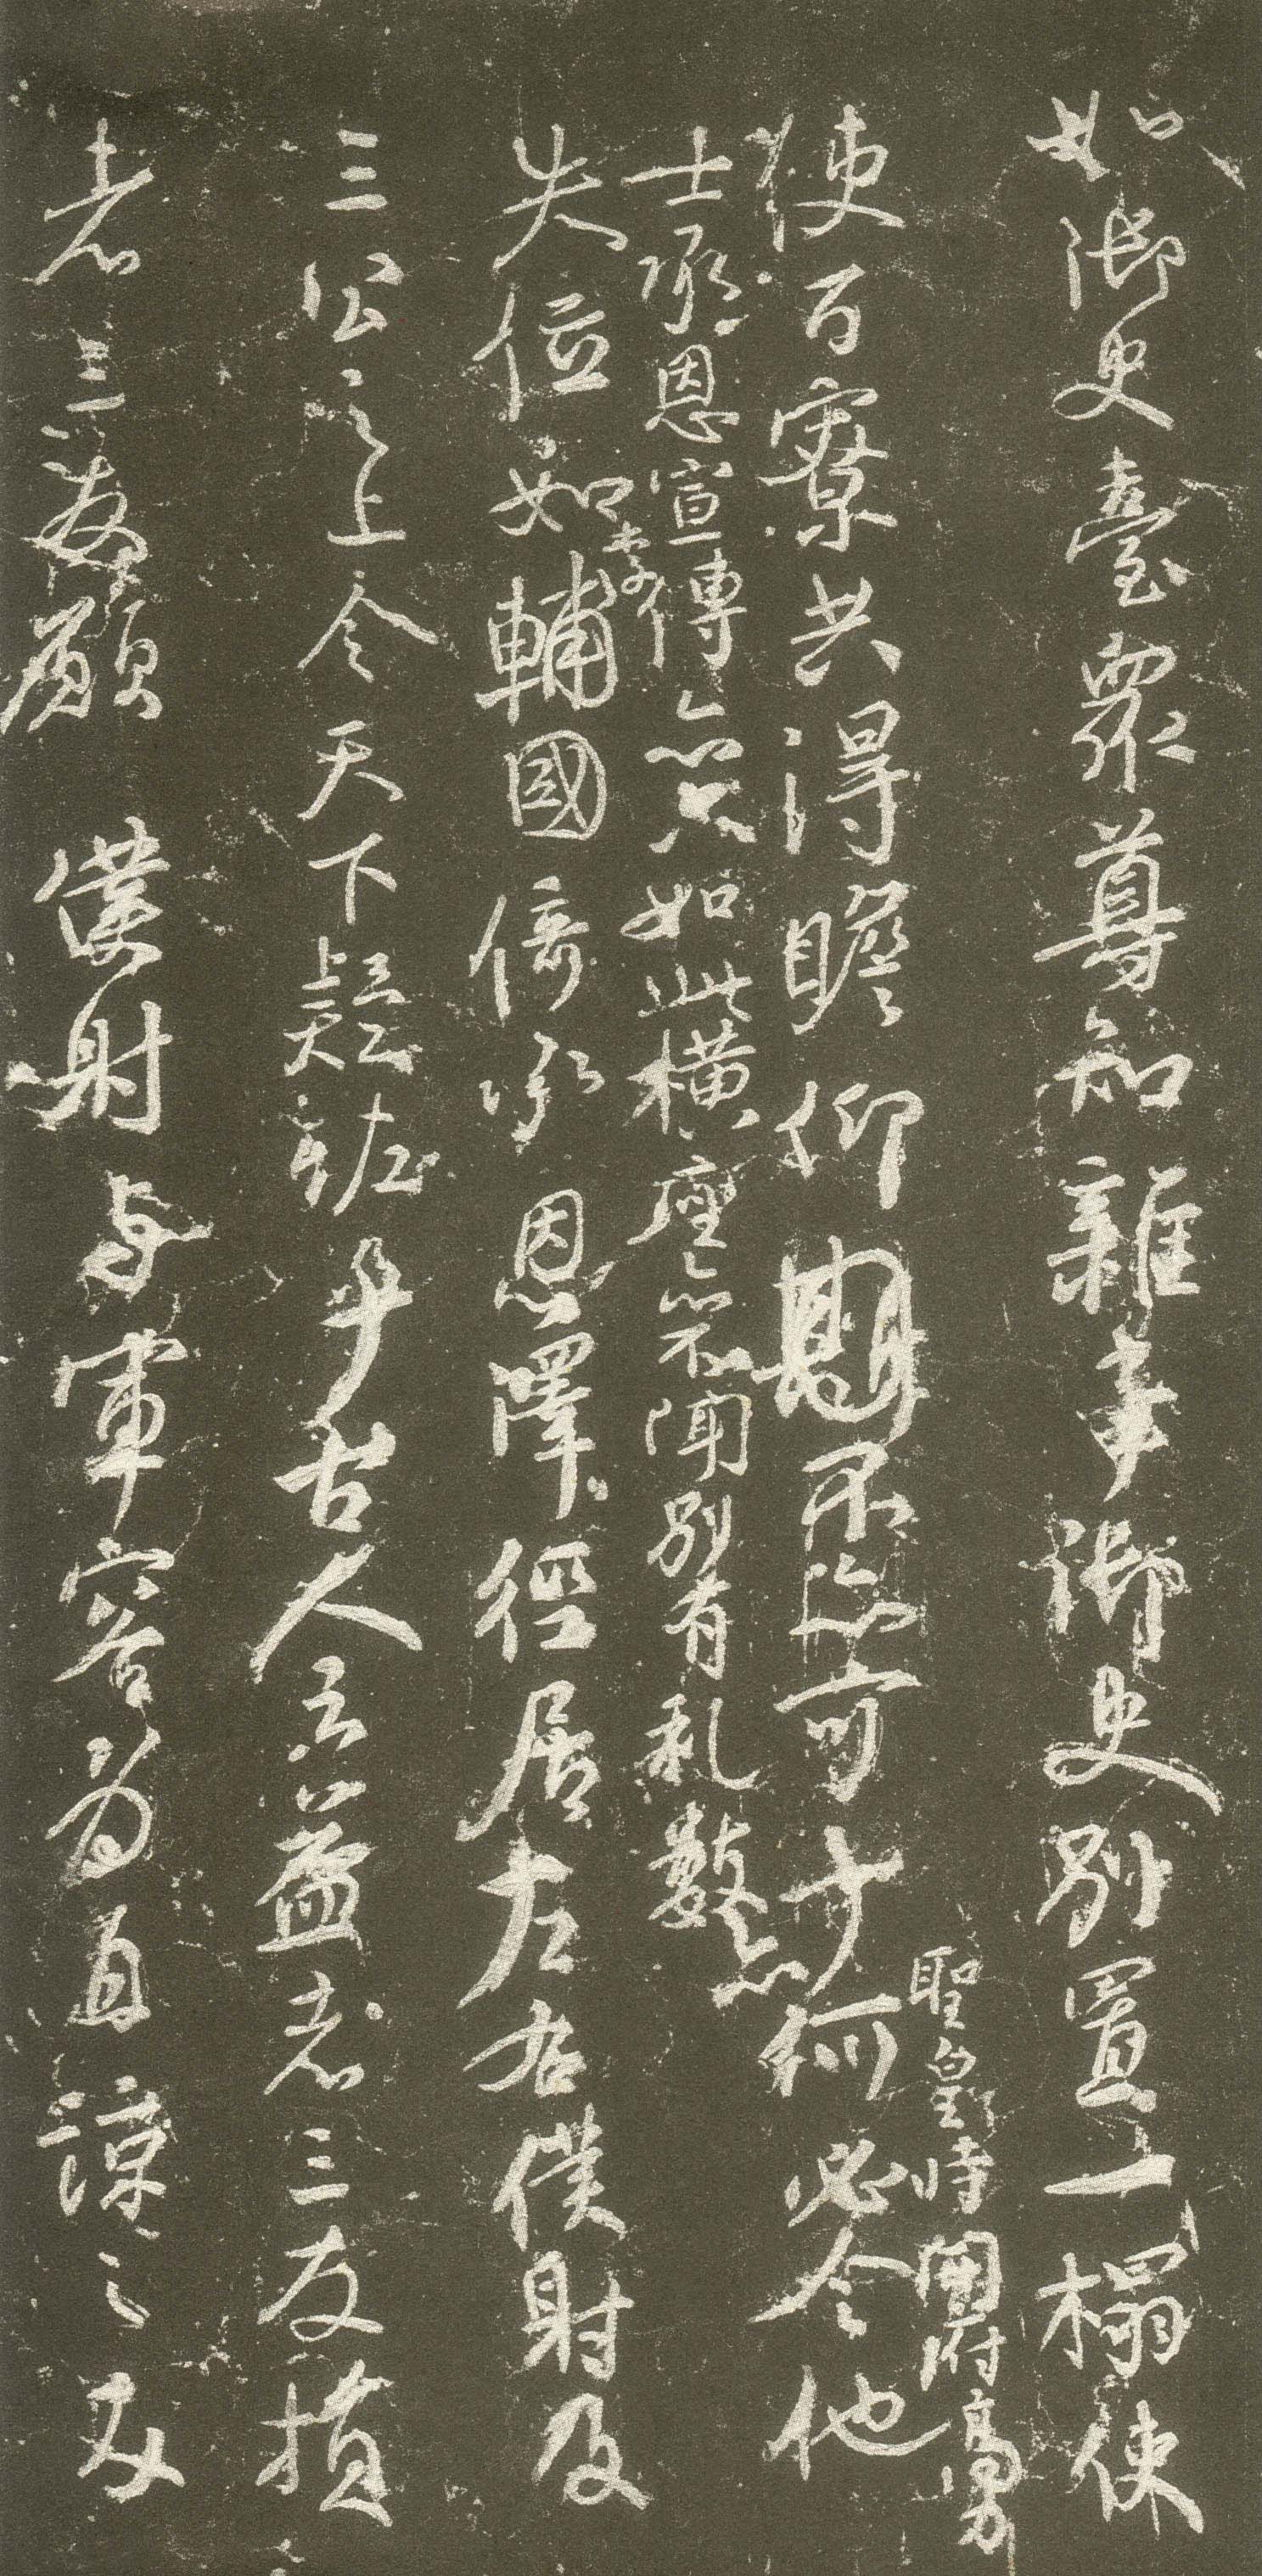 如御史臺眾尊知雜事御史別置一榻使
使百寮共得瞻仰不亦可乎何必令他
聖皇時開府高力
士承恩宣傳亦只如此橫座亦不聞別有礼數亦
失位如李輔國倚承恩澤徑居左右僕射及
三公之上令天下疑怪乎古人云益者三友損
者三友願僕射与軍容為直諒之友